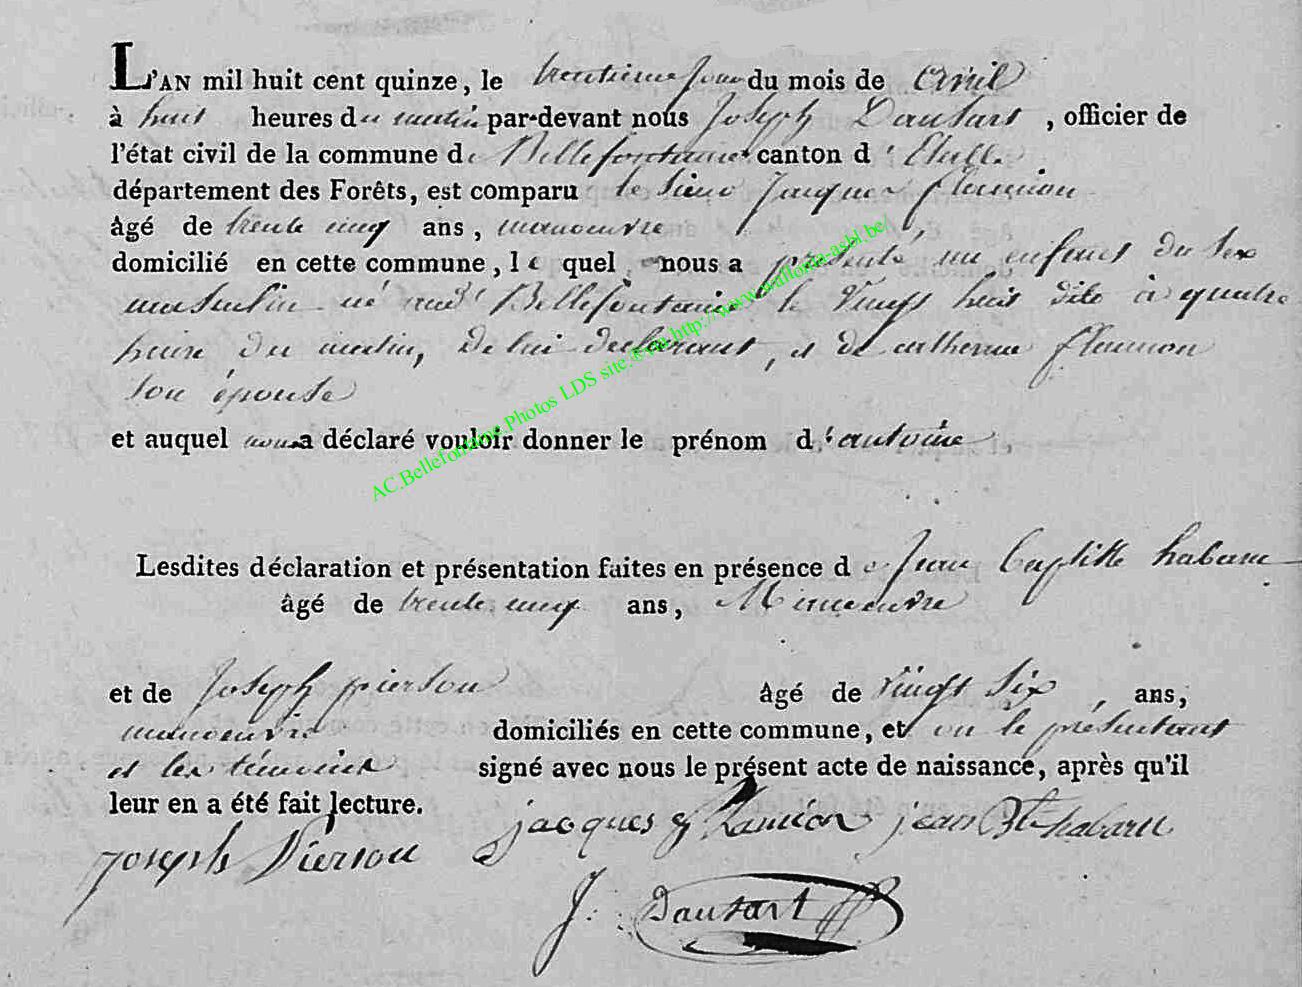 L'AN mil huit cent quinze, le trentieme jour du mois de avril
à huit heures du matin par-devant nous Joseph Dausart, officier de
l'état civil de la commune de Bellefontaine canton d'Etalle
département des Forêts, est comparu le sieur Jacques flamion
âgé de trente neuf ans, manoeuvre
domicilié en cette commune, le quel nous a présenté un enfant du sex
masculin né Bellefontaine le vingt huit dito à quatre
heure du matin, de lui declarant, et de catherine flamion
son épouse
et auquel a déclaré vouloir donner le prénom d'antoine
AC.Bellefontaine.Photos LDS site:®via http://www.wallonia-asbl.be/
Lesdites déclaration et présentation faites en présence de Jean baptiste habaru
âgé de trente neuf ans, Manoeuvre
et de Joseph pierson âgé de vingt six, ans,
manoeuvre domiciliés en cette commune, et on le présentant
et les témoins signé avec nous le présent acte de naissance, après qu'il
leur en a été fait lecture.
joseph Pierson jacques flamion jean Bte habaru
J. Dausart